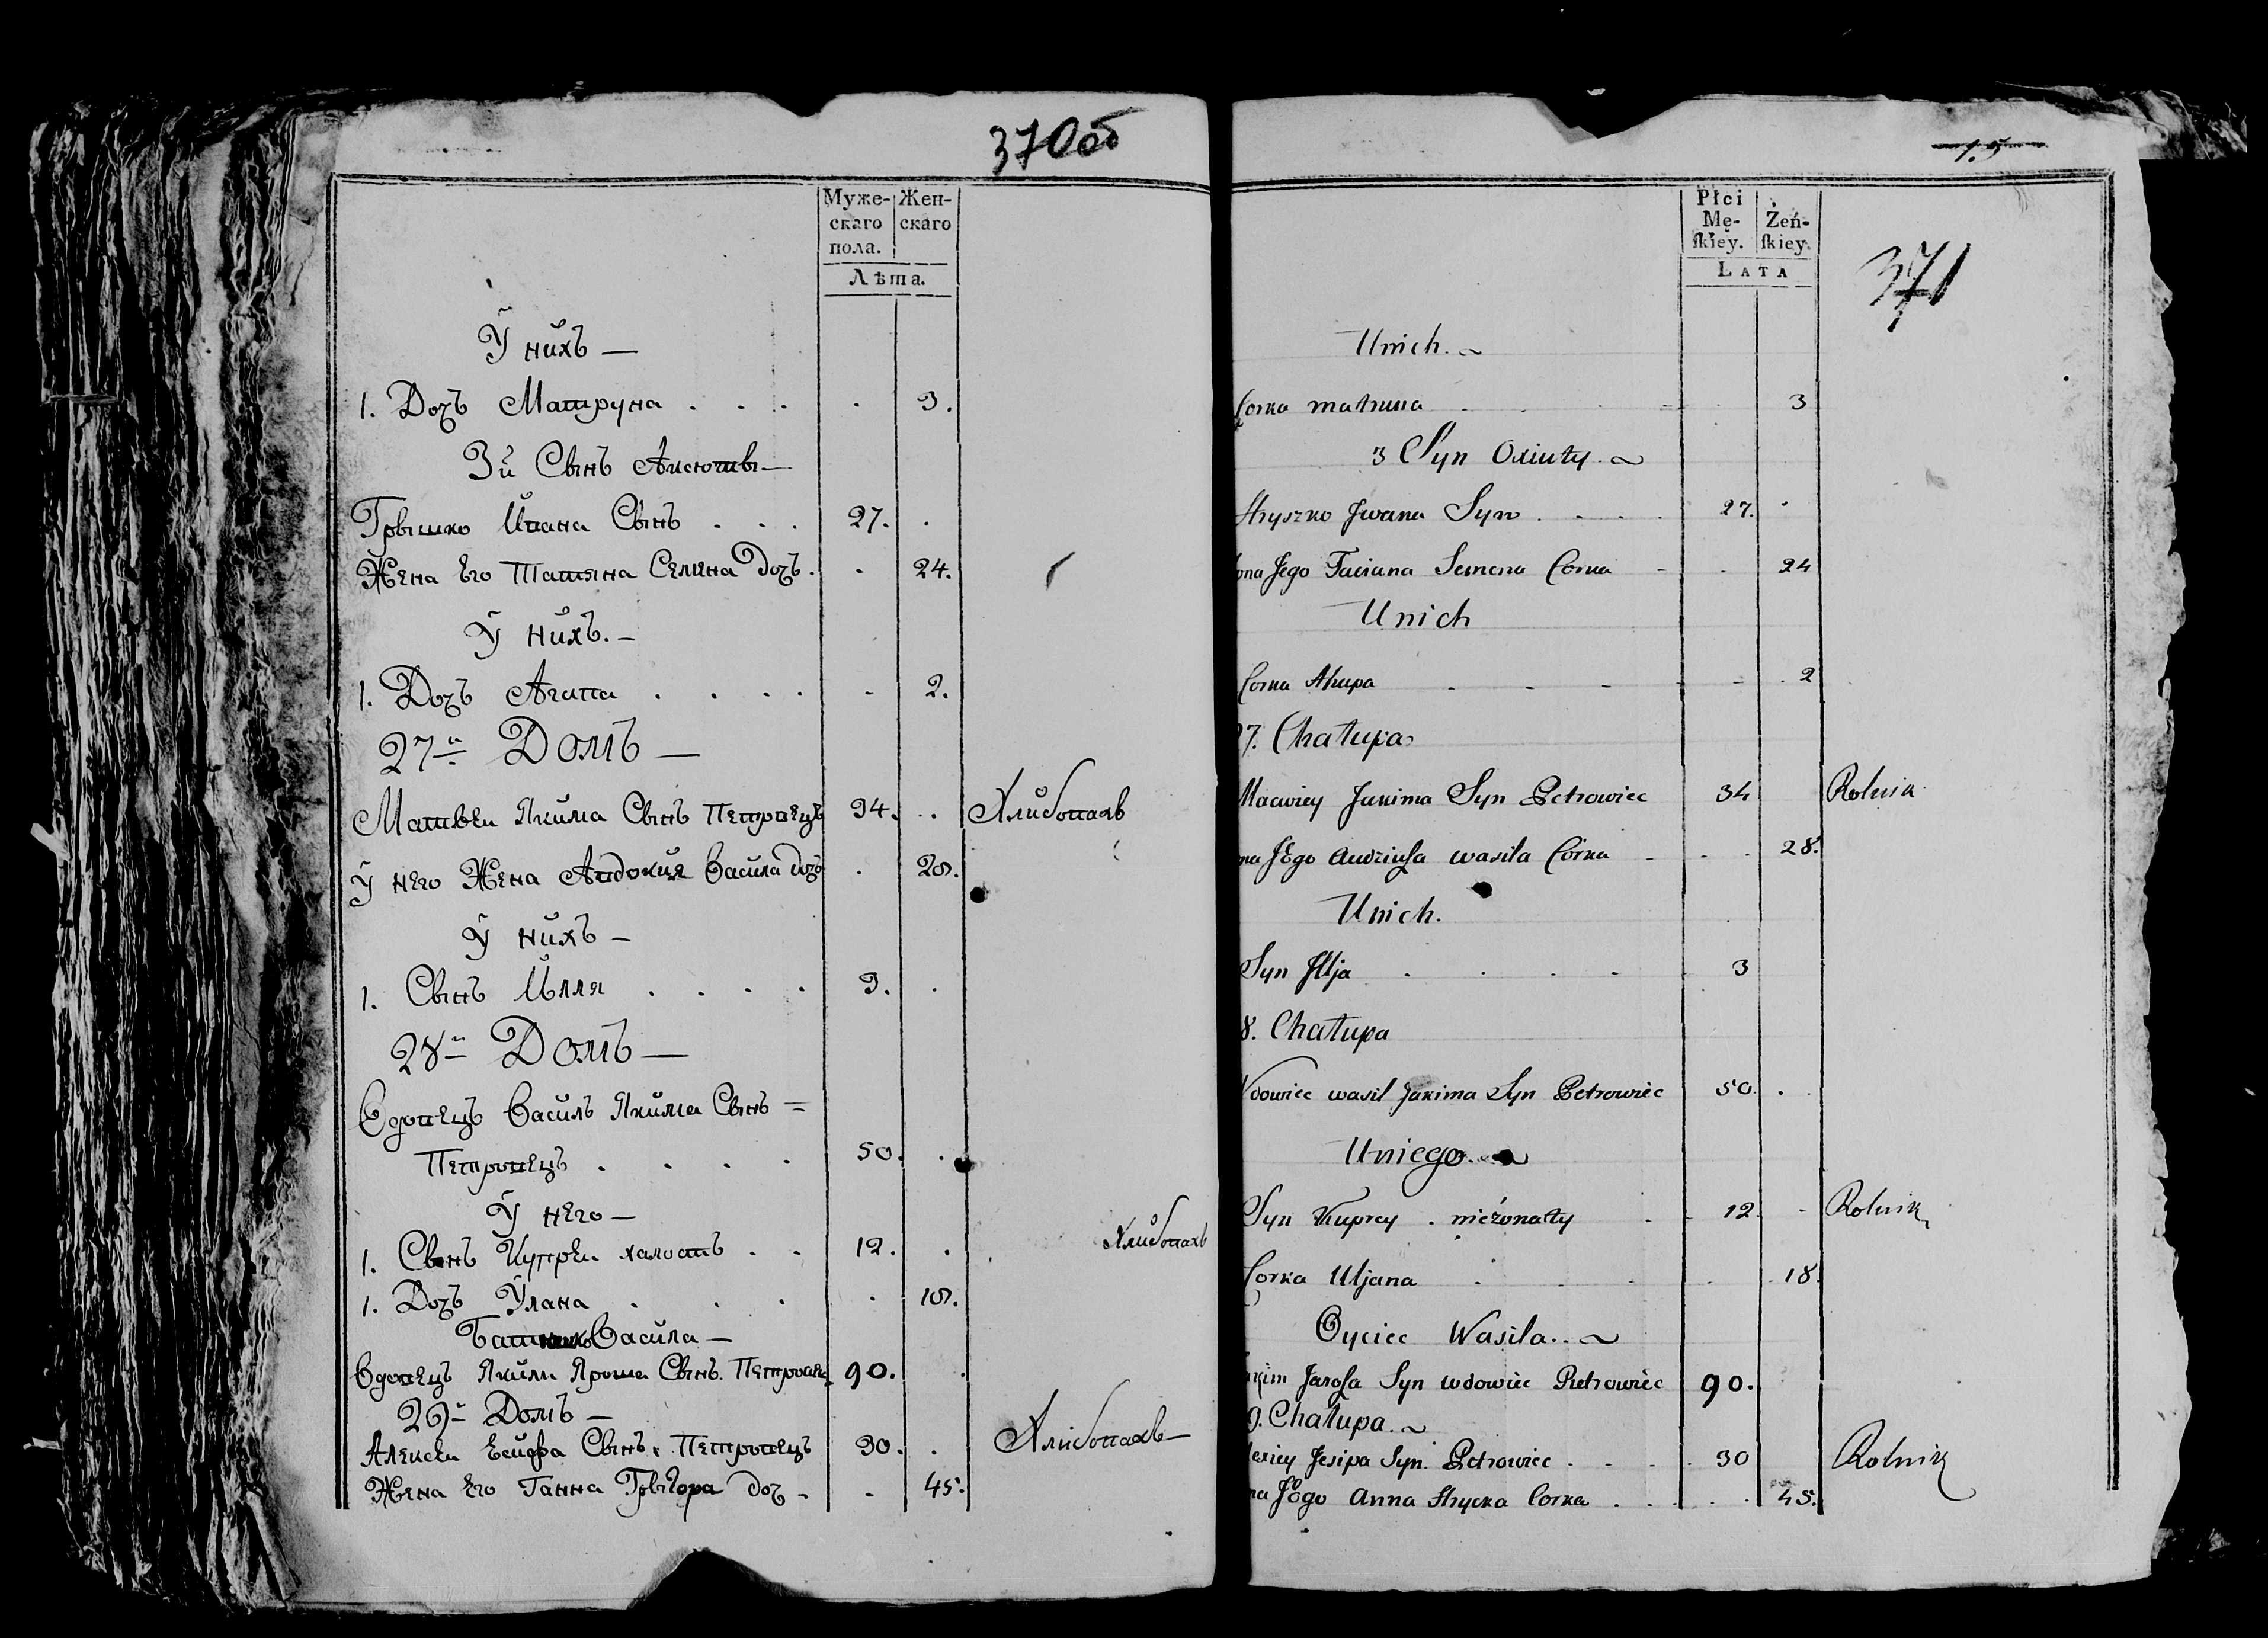 370об
Муже- Жен-
скаго скаго
пола.
Лѣта.
Ў нихъ —
1. Дочъ Матруна . . . . 3.
3й Сынъ Аксюты —
Грышко Ивана Сынъ . . . 27. .
Жена Его Татяна Семена Дочъ . . 24.
Ў нихъ. —
1. Дочъ Агапа . . . . - 2.
27й Домъ —
Матвеи Якима Сынъ Петровецъ 34. . . Хлибопахъ
Ў него Жена Авдокия Василя дочъ . 28.
Ў нихъ —
1. Сынъ Илля . . . . 3. .
28й Домъ —
Вдовецъ Василь Якима Сынъ =
Петровецъ . . . . 50. .
Ў него —
1. Сынъ Купреи халостъ . . 12. . Хлибопахъ
1. Дочъ Ўляна . . . . 18.
Василя —
Вдовецъ Яким Яроша Сынъ. 90. .
29й Домъ —
Алексеи Есифа Сынъ. Петровецъ 30. . Хлибопахъ —
Жена Его Ганна Грыгора доч - - 45.
15
371
Płci
Mę- Żeń-
skiey. skiey.
LATA
Unich. ~
Corka matruna . . . - . 3
3 Syn Oxiuty. ~
Hryszko Jwana Syn . . . . 27. .
ona Jego Taciana Semena Corka - . 24
Unich
Corka Ahapa . - - - - . 2
27. Chałupa
Macwiey Jakima Syn Petrowiec 34 Rolnik
na JEgo Audziusa wasila Córka - . . 28.
Unich.
Syn Jllja . . . . 3
8. Chałupa
Wdowiec wasil Jakima Syn Petrowiec 50. .
Uniego. ~
Syn Kuprey . nieżonaty . . 12. - Rolnik
Corka Uljana . . . . 18.
Oyciec Wasila.. ~
kim Jarosa Syn wdowiec Pietrowiec 90.
9. Chałupa. ~
lexiey Jesipa Syn. Petrowiec . . . . 30 Rolnik
na JEgo Anna Hrycka Corka . . . . . 45.